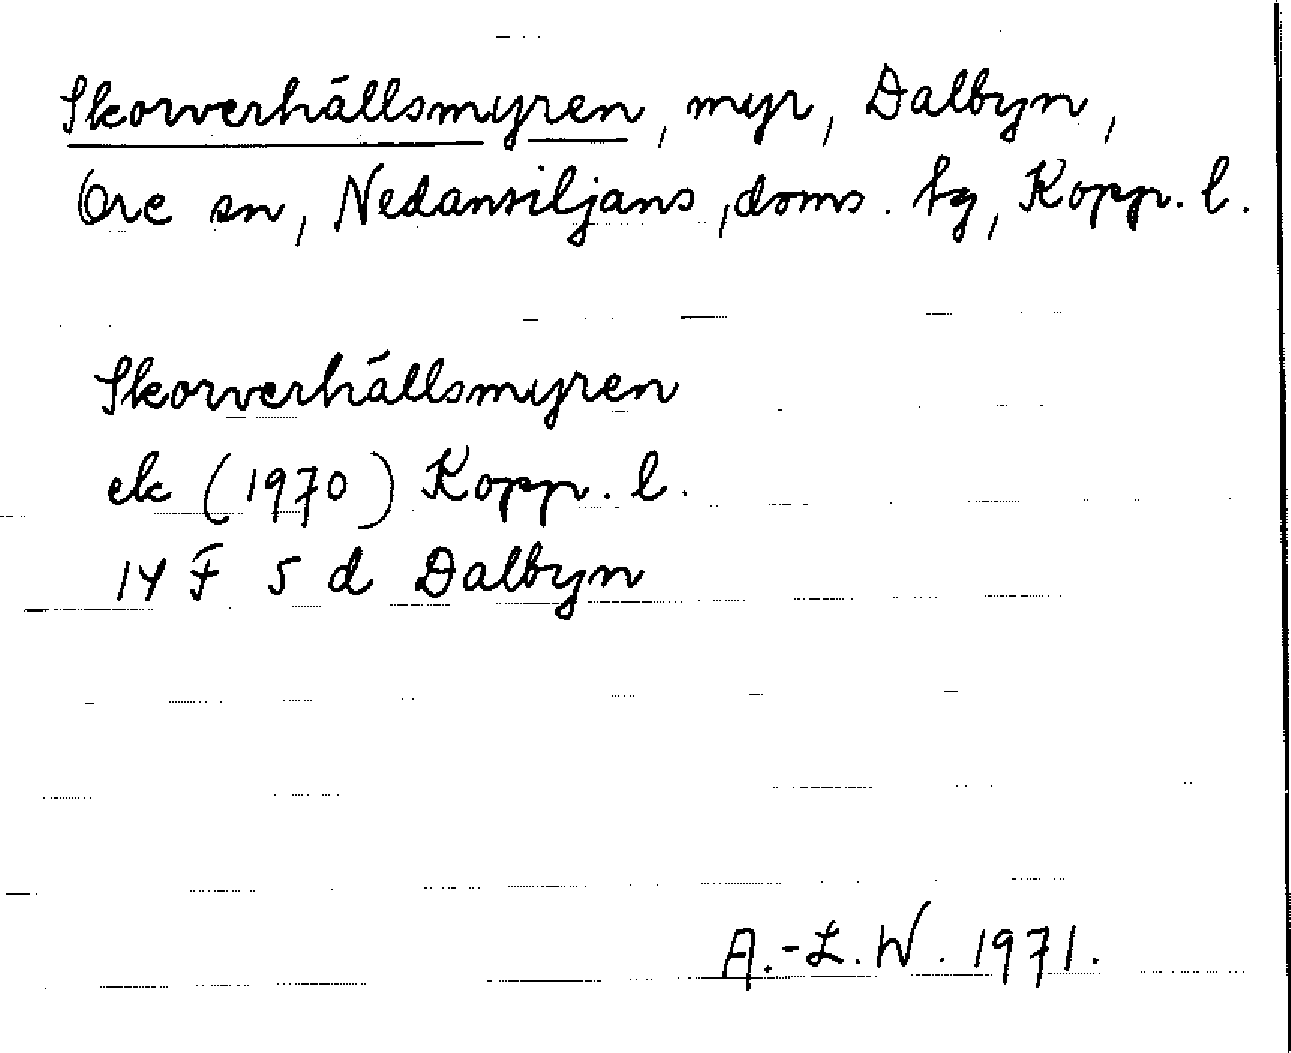 Skorverhällsmyren, myr, Dalbyn,
Ore sn, Nedansiljans, doms. tg, Kopp. l.
Skorverhällsmyren
ek (1970) Kopp. l.
14 F 5 d Dalbyn
A.-L. W. 1971.